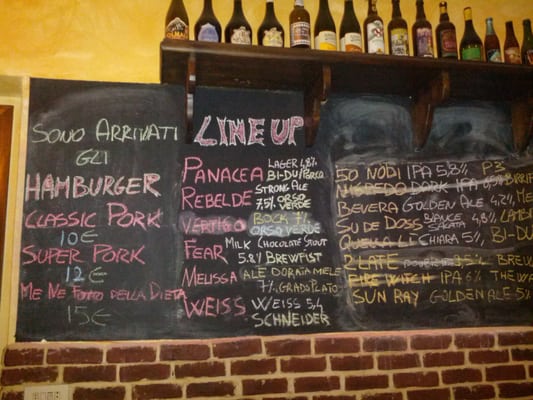 SONO ARRIVATI
GLI
HAMBURGER
CLASSIC PORK
10€
SUPER PORK
12€
ME NE FOTTO DELLA DIETA
15€
LINE UP
PANACEA LAGER 4,8%
BI-DU/PORCO
REBELDE STRONG ALE
7,5% ORSO
VERDE
VERTIGO BOCK 7%
ORSO VERDE
FEAR MILK CHOCOLATE STOUT
5.8% BREWFIST
MELISSA ALE DORATA MIELE
7% GRADO PLATO
WEISS WEISS 5,4
SCHNEIDER
50 NODI IPA 5,8%
NIGREDO DARK IPA
BEVERA GOLDEN ALE 4,2%
SU DE DOSS BIANCE
SAGATA 4,8%
QUELLA LI CHIARA 5%, BI-DU
2LATE
FIRE WITCH IPA 6% THE
SUN RAY GOLDEN ALE 5%